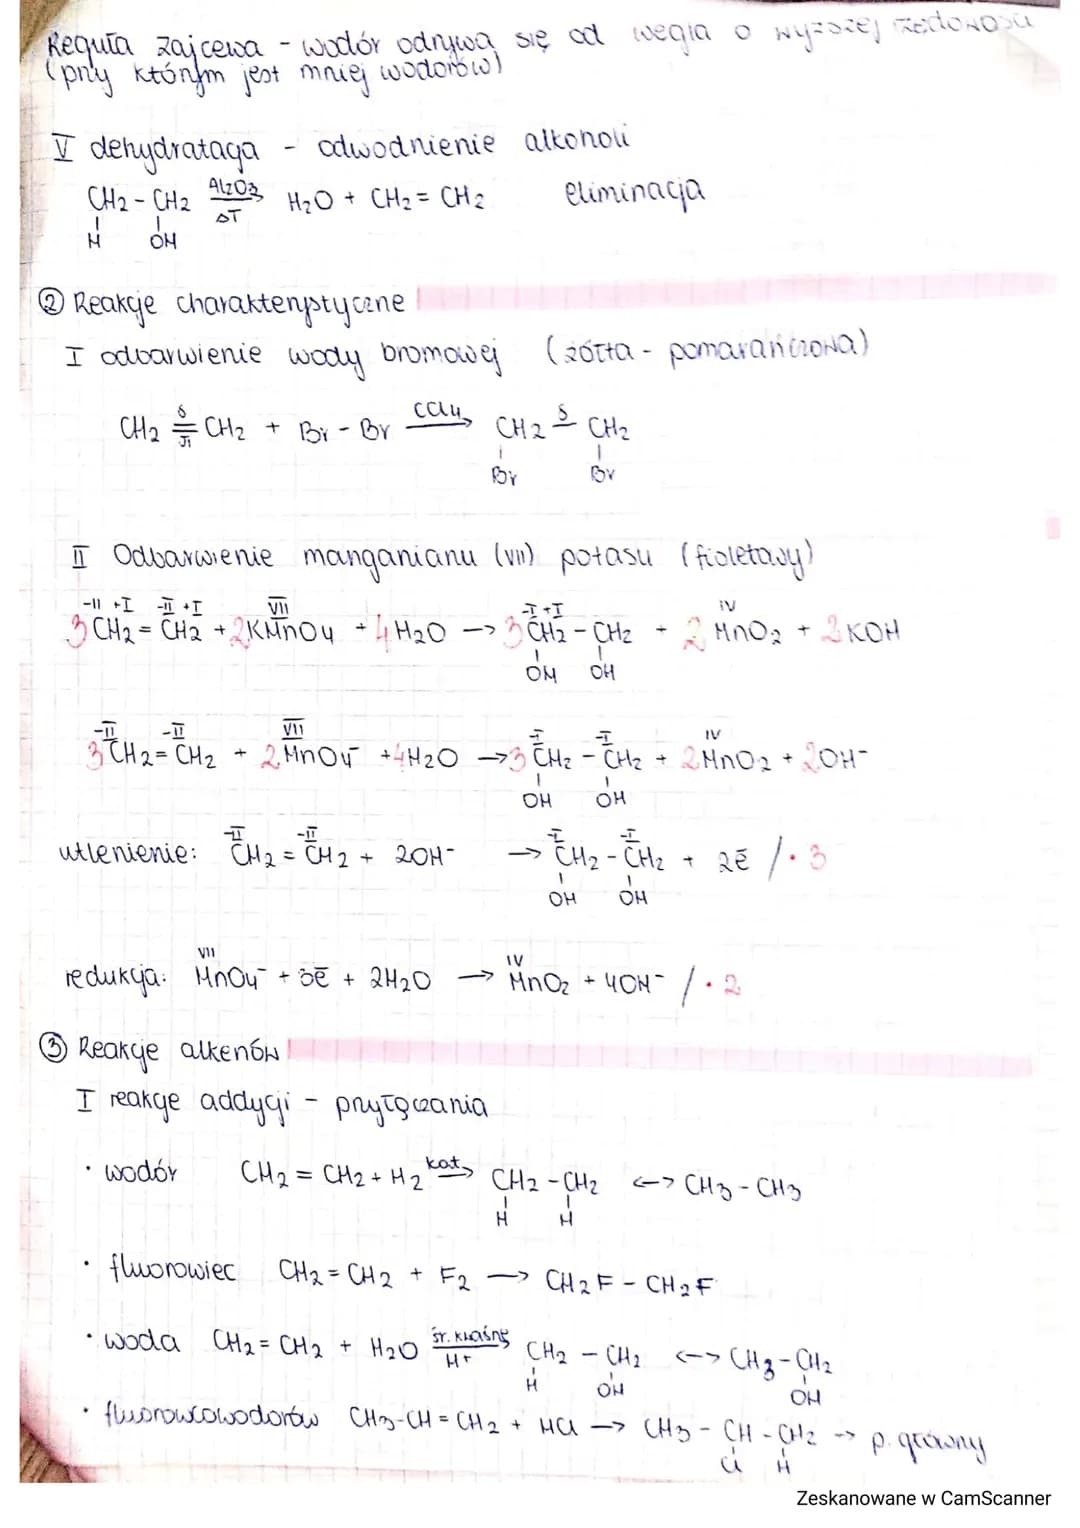 Reguła Zajcewa - wodór odrywa się od węgla o wyższej rzędowości
(przy którym jest mniej wodorów)
V dehydratacja - odwodnienie alkoholi
CH2 - CH2 Al2O3 ΔT → H2O + CH2 = CH2 eliminacja
H OH
② Reakcje charakterystyczne
I odbarwienie wody bromowej (żółta - pomarańczowa)
CH2 = CH2 + Br - Br CCl4 → CH2 - CH2
δ π δ
Br Br
II Odbarwienie manganianu (VII) potasu (fioletowy)
-II +I -II +I VII -I +I IV
3 CH2 = CH2 + 2 KMnO4 + 4 H2O → 3 CH2 - CH2 + 2 MnO2 + 2 KOH
OH OH
-II -II VII -I -I IV
3 CH2 = CH2 + 2 MnO4- + 4 H2O → 3 CH2 - CH2 + 2 MnO2 + 2 OH-
OH OH
-II -II -I -I
utlenienie: CH2 = CH2 + 2OH- → CH2 - CH2 + 2ē / · 3
OH OH
VII IV
redukcja: MnO4- + 3ē + 2H2O → MnO2 + 4OH- / · 2
③ Reakcje alkenów
I reakcje addycji - przyłączania
· wodór CH2 = CH2 + H2 kat. → CH2 - CH2 <-> CH3 - CH3
H H
· fluorowiec CH2 = CH2 + F2 → CH2F - CH2F
· woda CH2 = CH2 + H2O śr. kwaśny H+ → CH2 - CH2 <-> CH3 - CH2
H OH OH
· fluorowcowodorów CH3-CH = CH2 + HCl → CH3 - CH - CH2 → p. główny
Cl H
Zeskanowane w CamScanner